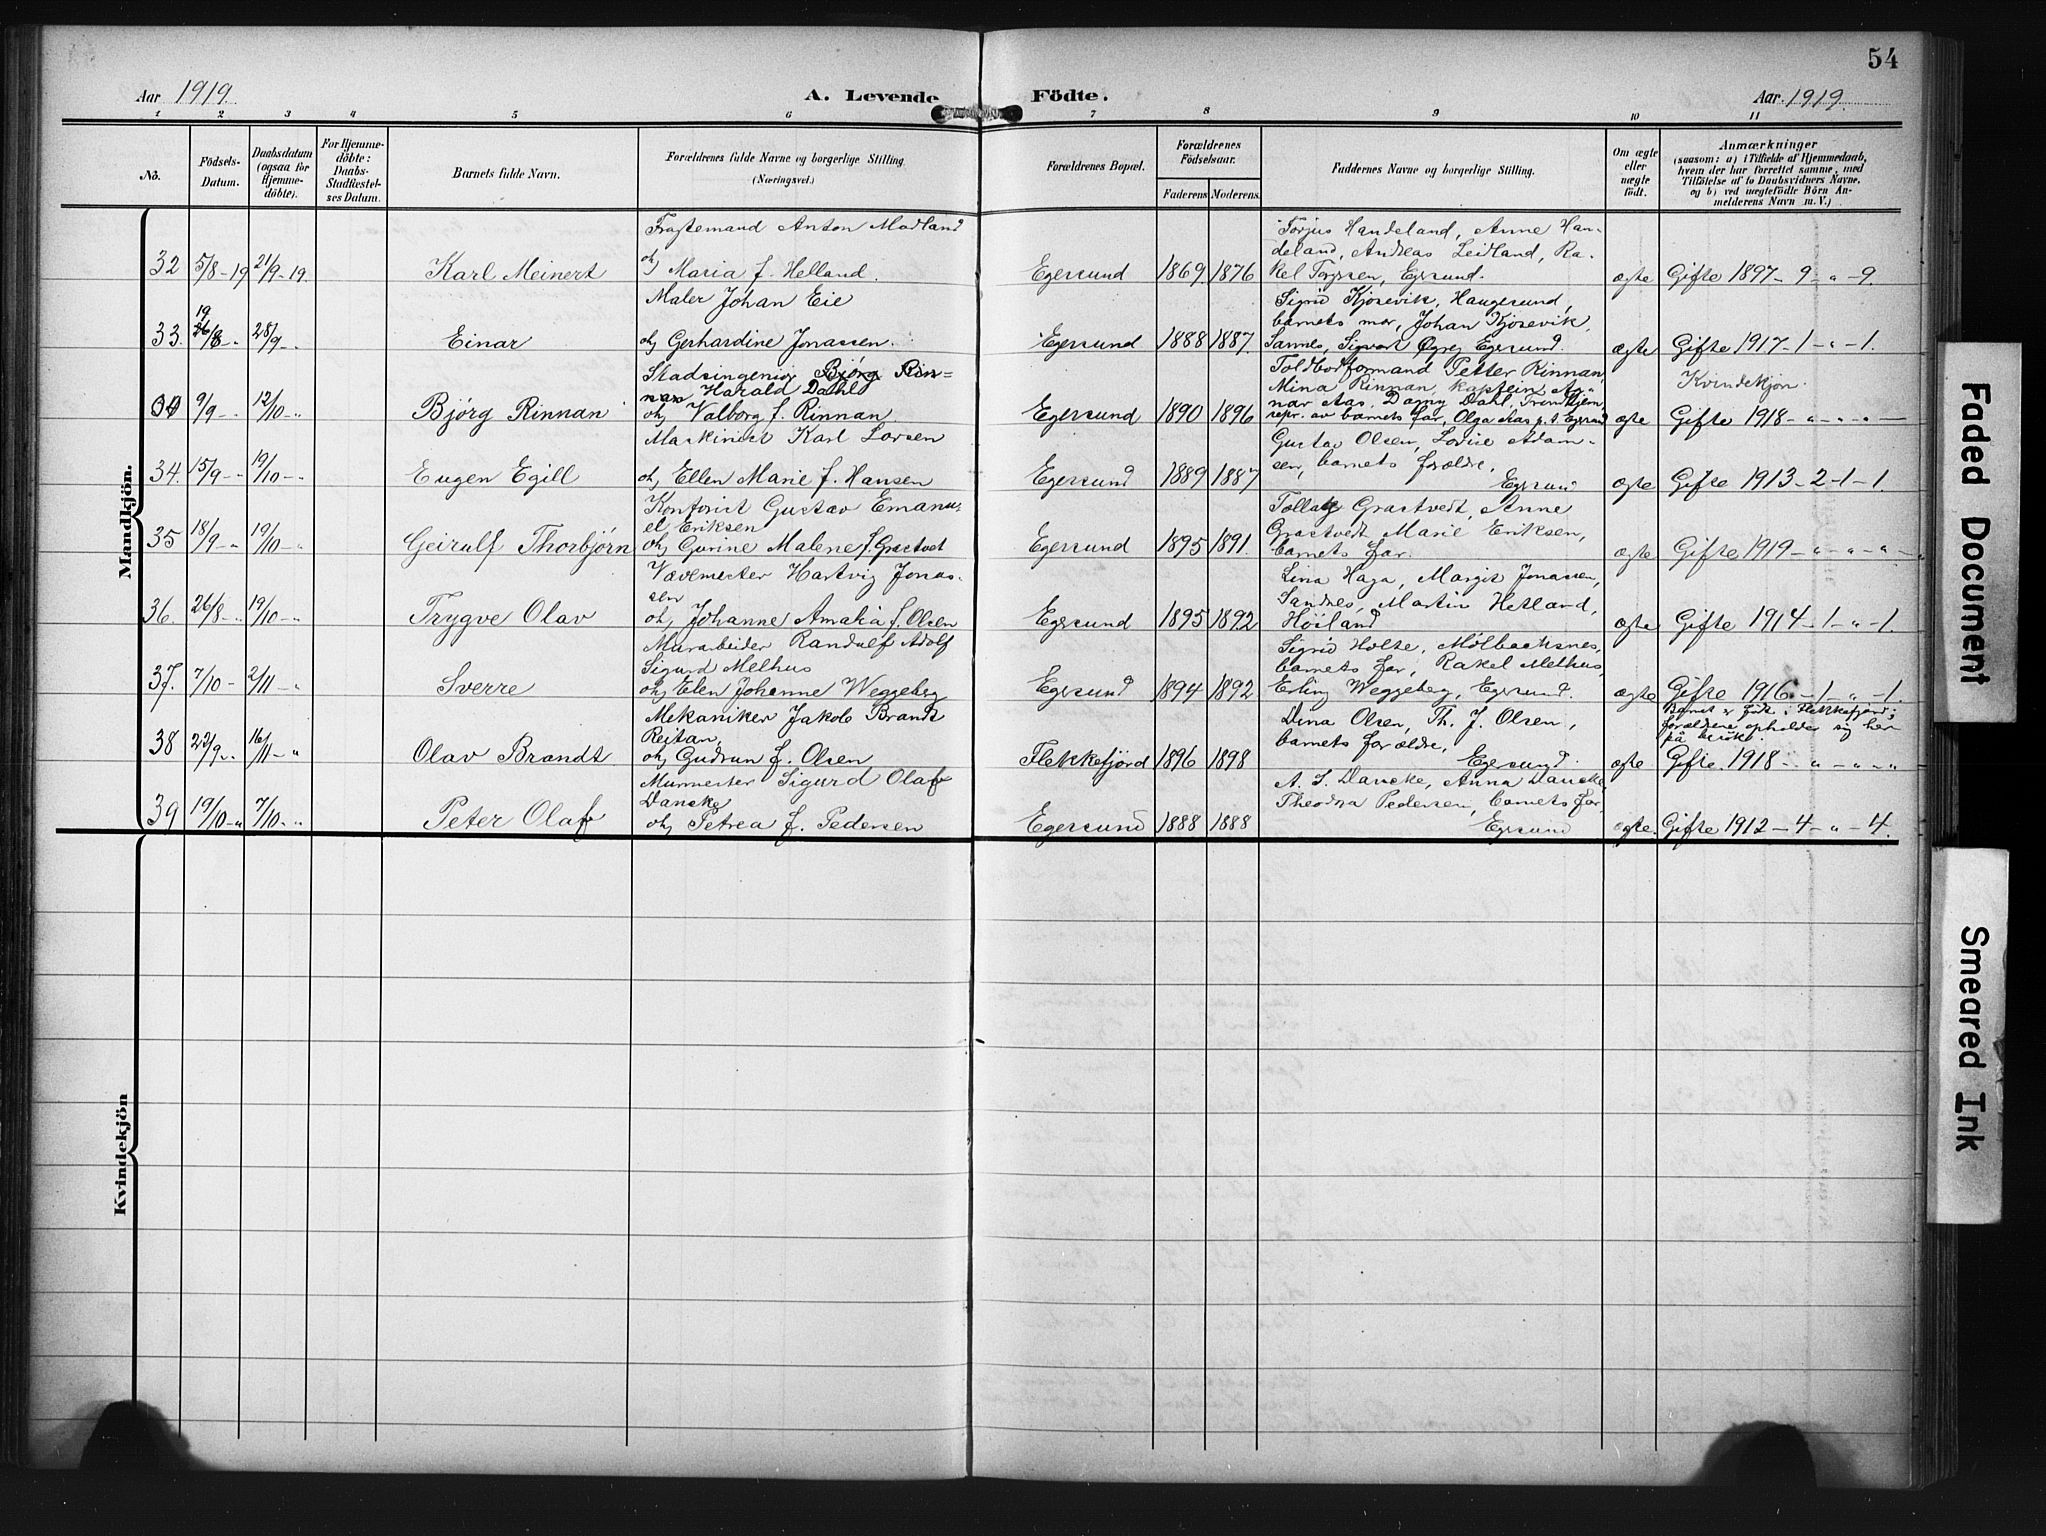 54
Aar 1919.
A. Levende Födte.
Aar 1919.
1 2 3 4 5 6 7 8 9 10 11
No.
Födsels-
Datum.
Daabsdatum
(ogsaa for
Hjemme-
döbte).
For Hjemme-
döbte:
Daabs-
Stadfæstel-
ses Datum.
Barnets fulde Navn.
Forældrenes fulde Navne og borgerlige Stilling.
(Næringsvei.)
Forældrenes Bopæl.
Forældrenes
Födselsaar.
Faderens Moderens.
Faddernes Navne og borgerlige Stilling.
Om ægte
eller
uægte
födt.
Anmærkninger
(saasom: a) i Tilfælde af Hjemmedaab,
hvem der har forrettet samme, med
Tilföielse af to Daabsvidners Navne,
og b) ved uægtefödte Börn An-
melderens Navn m. V.)
Mandkjön.
Fragtemand Anton Modland
Torjus Handeland, Anne Han-
deland, Andreas Leidland, Ra-
32 5/8-19 21/9-19. Karl Meinert og Maria f. Helland. Egersund 1869. 1876 kel Torgsen, Egersund. ægte Gifte 1897-9-"-9.
Maler Johan Eie
Sigrid Kjosevik, Haugesund,
barnets mor, Johan Kjosevik,
33. 19/8 - 28/9 -" Einar og Gerhardine Jonassen. Egersund 1888 1887. Sannes, Sigvart Øgrey Egersund. ægte Gifte 1917-1-"-1.
Stadsingeniør Bjørg Rin-
nan Harald Dahl
Toldbodformand Petter Rinnan,
Mina Rinnan, kaptein Ag-
nar Aas, Dagny Dahl, Trondhjem,
Kvindekjøn.
9/9 -" 12/10 -" Bjørg Rinnan og Valborg f. Rinnan Egersund 1890 1896 repr. av barnets far, Olga Aas p.t. Egersund ægte Gifte 1918-"-"-"-
Maskinist Karl Larsen
Gustav Olsen, Lovise Adam-
sen, barnets forældre,
34. 15/9 -" 19/10 -" Eugen Egill og Ellen Marie f. Hansen Egersund 1889 1887 Egersund ægte Gifte 1913-2-1-1.
Kontorist Gustav Emanu-
el Eriksen
Tollag Grastvedt, Anne
Grastvedt Marie Eriksen,
35 18/9 -" 19/10 -" Geirulf Thorbjørn og Gurine Malene f. Grastvet Egersund 1895 1891. barnets far. ægte Gifte 1919-"-"-"-"
Vævemester Hartvig Jonas-
sen
Lina Haga, Margit Jonassen,
Sandnes, Martin Hetland,
36. 26/8 -" 19/10 -" Trygve Olav og Johanne Amalia f. Olsen Egersund 1895 1892 Høiland ægte Gifte 1914-1-"-1.
Murarbeider Randulf Adolf
Sigurd Melhus
Sigrid Holte, Mølbachsnes,
barnets far, Rakel Melhus,
37. 7/10 - 2/11 -" Sverre og Elen Johanne Weggeberg Egersund 1894 1892 Erling Weggeberg, Egersund. ægte Gifte 1916-1-"-1.
Mekaniker Jakob Brandt
Reitan
Dina Olsen, Th. J. Olsen,
barnets forældre,
Barnet er født i Flekkefjord;
forældrene opholder sig her
på besøk.
38 22/9 -" 16/11 -" Olav Brandt og Gudrun f. Olsen Flekkefjord 1896 1898 Egersund. ægte Gifte. 1918-"-"-"
Murmester Sigurd Olaf
Danske
A. S. Danske, Anna Danske,
Theodora Pedersen, barnets far,
39 19/10 -" 7/10 -" Peter Olaf og Petrea f. Pedersen Egersund 1888 1888 Egersund ægte. Gifte 1912-4-"-4.
Kvindekjön
Faded Document
Smeared Ink